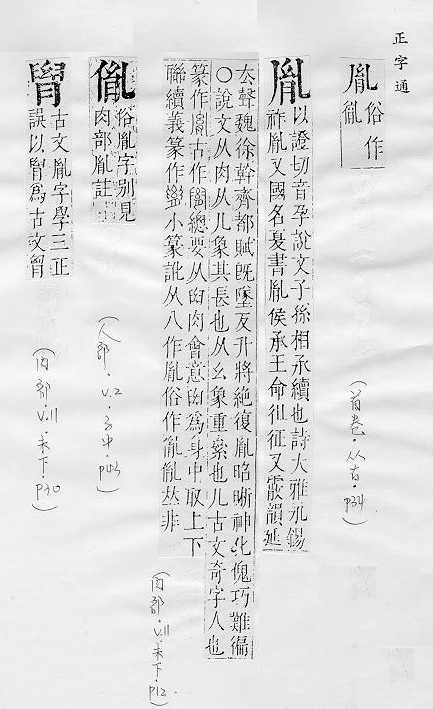 正字通
胤俗作
㣧
(首卷.从古.p34)
胤以證切音孕說文子孫相承續也詩大雅永錫
祚胤又國名夏書胤侯承王命徂征又霰韻延
去聲魏徐幹齊都賦旣墜反升將絕復胤昭晰神化傀巧難徧
○說文从肉从八象其長也从幺象重累也儿古文奇字人也
篆作胤古作𦞀總要从𦥑肉會意𦥑為身中取上下
聯續義篆作小篆訛从八作胤俗作㣧𠄘𠀤非
(肉部.v.11.未下.p12)
俗胤字別見
肉部胤註
(人部.v.2.子中.p03)
古文胤字學三正
誤以為古文胃
(肉部.v.11.未下.p40)